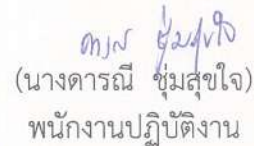 (นางดารณี ชุ่มสุขใจ)
พนักงานปฏิบัติงาน